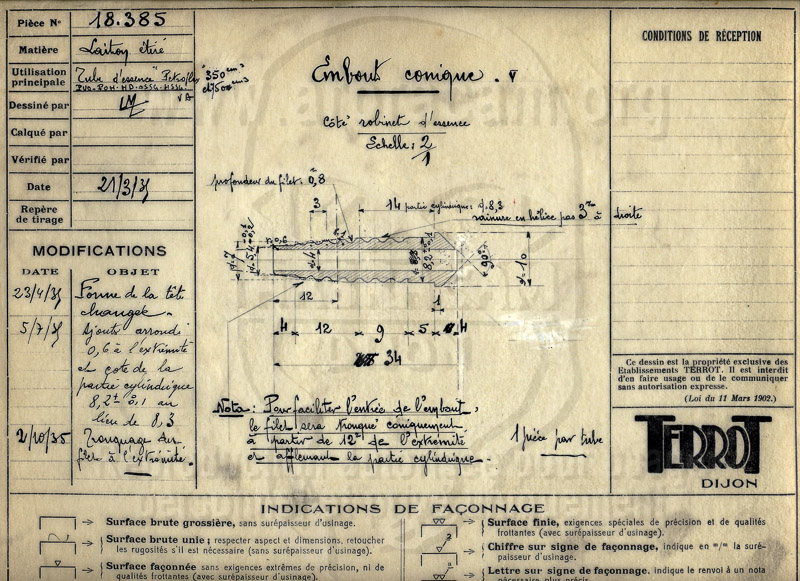 Pièce No 18.385
Matière Laiton étiré
Utilisation principale Tube d'essence "Petroflex" 350 cm3 et 500 cm3
Dessiné par LM
Calqué par
Vérifié par
Date 21/3/35
Repère de tirage
MODIFICATIONS
DATE OBJET
23/4/35 Forme de la tête
changée.
5/7/35 Ajouts arrondi
0,6 à l'extrémité
et cote de la
partie cylindrique
8,2 ± 0,1 au
lieu de 8,3
2/10/35 Tronquage du
filet à l'extrémité.
Embout conique. V
Côté robinet d'essence
Echelle: 2/1
profondeur du filet: 0,8
3
14 partie cylindrique: d. 8,3
rainure en hélice pas 3 m/m à droite
r. 0,6
d. 7
d. 4
8,2 ± 0,1
90°
d. 10
12
1
4 12 9 5 4
34
Nota: Pour faciliter l'entrée de l'embout,
le filet sera tronqué coniquement
à partir de 12 de l'extrémité
et affleurant la partie cylindrique.
1 pièce par tube
CONDITIONS DE RÉCEPTION
Ce dessin est la propriété exclusive des
Etablissements TERROT. Il est interdit
d'en faire usage ou de le communiquer
sans autorisation expresse.
(Loi du 11 Mars 1902.)
TERROT
DIJON
INDICATIONS DE FAÇONNAGE
Surface brute grossière, sans surépaisseur d'usinage.
Surface brute unie; respecter aspect et dimensions, retoucher
les rugosités s'il est nécessaire (sans surépaisseur d'usinage).
Surface façonnée sans exigences extrêmes de précision, ni de
qualités frottantes (avec surépaisseur d'usinage).
Surface finie, exigences spéciales de précision et de qualités
frottantes (avec surépaisseur d'usinage).
Chiffre sur signe de façonnage, indique en m/m la suré-
paisseur d'usinage.
Lettre sur signe de façonnage, indique le renvoi à un nota
nécessaire plus précis